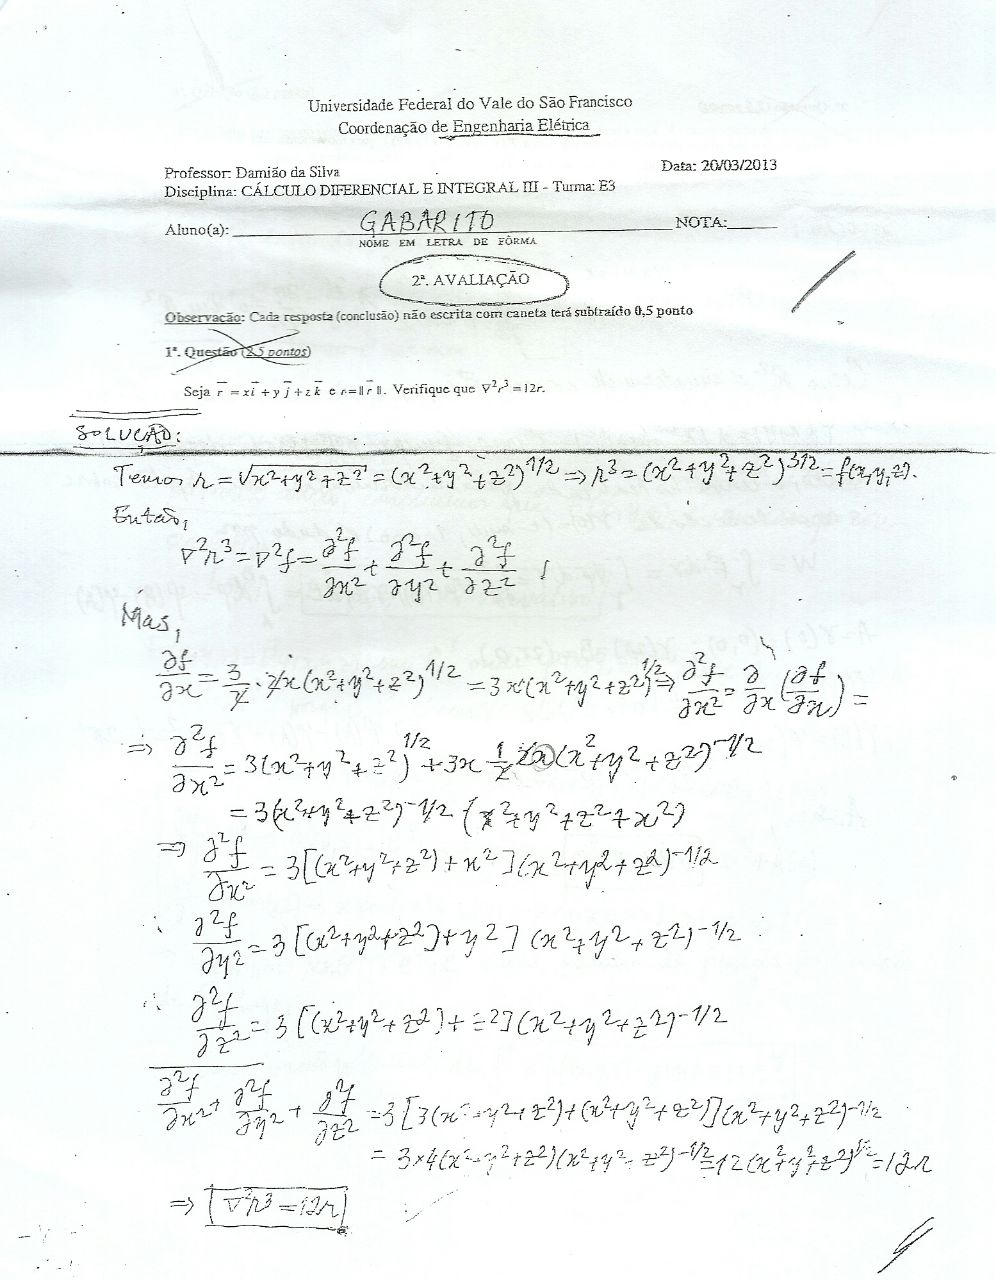 Universidade Federal do Vale do São Francisco
Coordenação de Engenharia Elétrica
Professor: Damião da Silva
Data: 20/03/2013
Disciplina: CÁLCULO DIFERENCIAL E INTEGRAL III - Turma: E3
Aluno(a): GABARITO NOTA:
NOME EM LETRA DE FÔRMA
2ª. AVALIAÇÃO
Observação: Cada resposta (conclusão) não escrita com caneta terá subtraído 0,5 ponto
1ª. Questão (2,5 pontos)
Seja r⃗ = xi⃗ + yj⃗ + zk⃗ e r=‖r⃗‖. Verifique que ∇²r³ = 12r.
SOLUÇÃO:
Temos r = √x²+y²+z² = (x²+y²+z²)^1/2 ⇒ r³ = (x²+y²+z²)^3/2 = f(x,y,z).
Então,
∇²r³ = ∇²f = ∂²f/∂x² + ∂²f/∂y² + ∂²f/∂z²
Mas,
∂f/∂x = 3/2 · 2x(x²+y²+z²)^1/2 = 3x(x²+y²+z²)^1/2 ⇒ ∂²f/∂x² = ∂/∂x (∂f/∂x) =
⇒ ∂²f/∂x² = 3(x²+y²+z²)^1/2 + 3x 1/2 2x(x²+y²+z²)^-1/2
= 3(x²+y²+z²)^-1/2 (x²+y²+z²+x²)
⇒ ∂²f/∂x² = 3[(x²+y²+z²)+x²](x²+y²+z²)^-1/2
∴ ∂²f/∂y² = 3[(x²+y²+z²)+y²](x²+y²+z²)^-1/2
∴ ∂²f/∂z² = 3[(x²+y²+z²)+z²](x²+y²+z²)^-1/2
∂²f/∂x² + ∂²f/∂y² + ∂²f/∂z² = 3[3(x²+y²+z²)+(x²+y²+z²)](x²+y²+z²)^-1/2
= 3×4(x²+y²+z²)(x²+y²+z²)^-1/2 = 12(x²+y²+z²)^1/2 = 12r
⇒ ∇²r³ = 12r